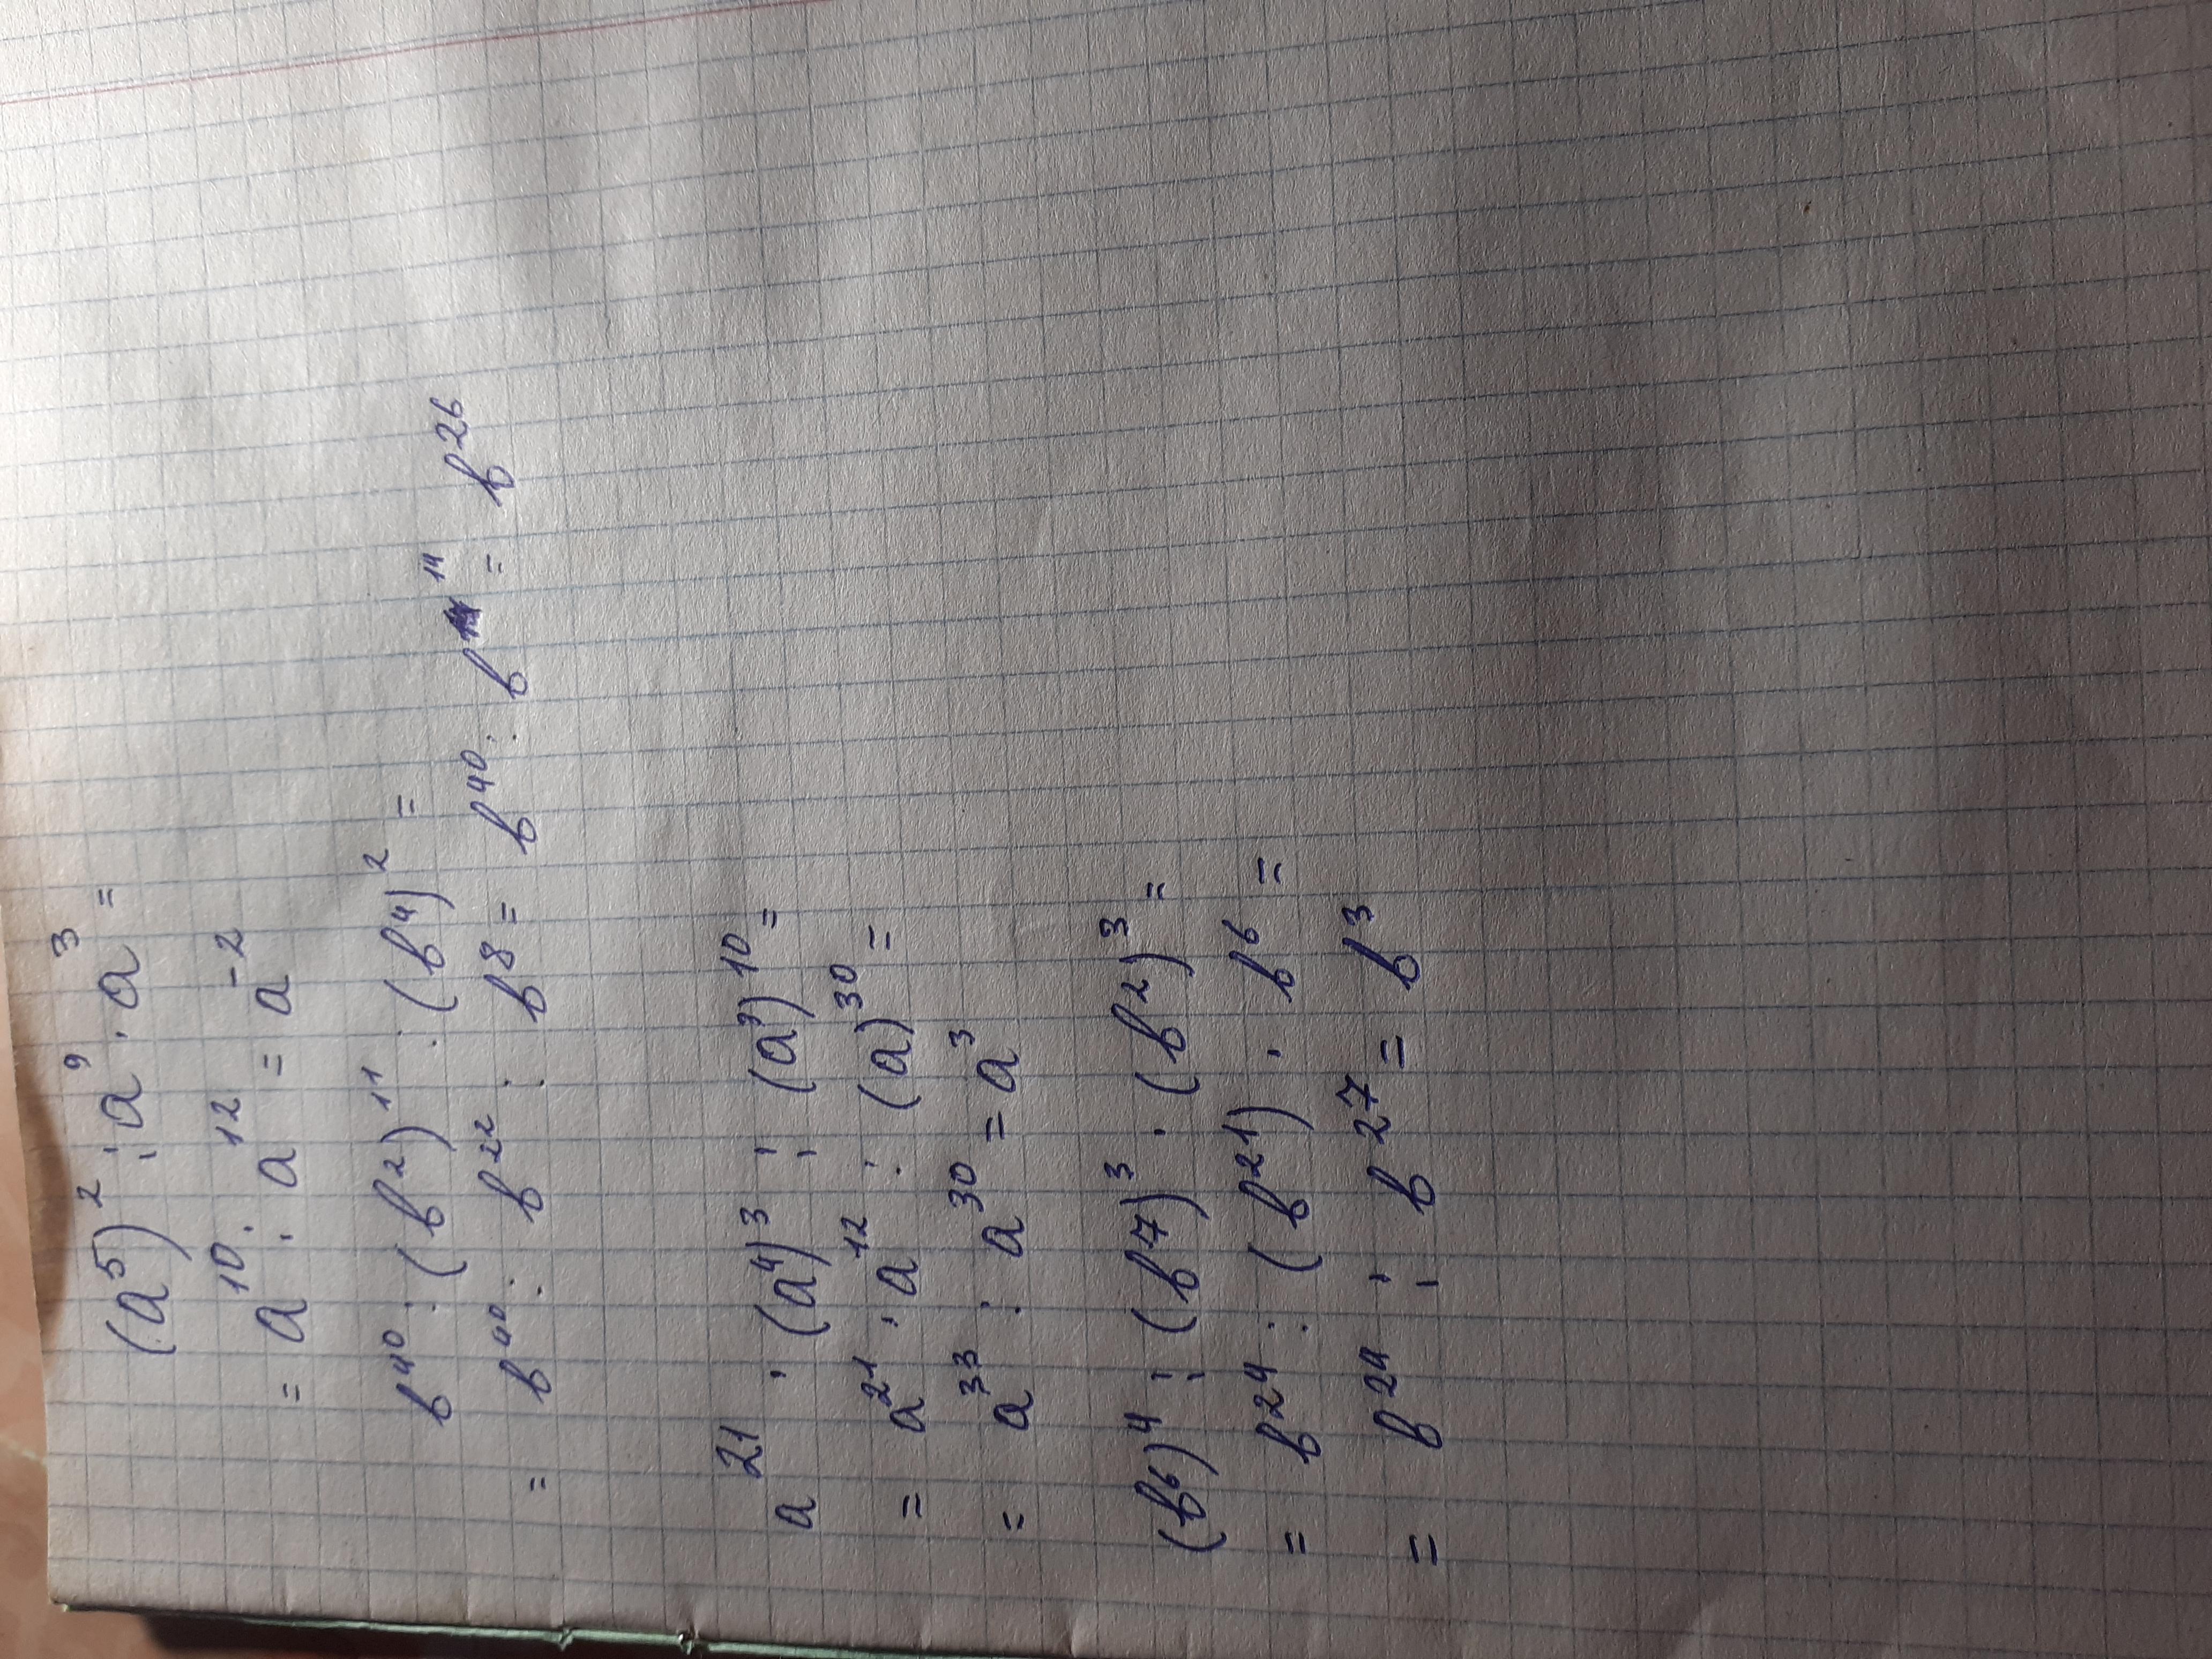 (a⁵)² : a⁹ · a³ =
= a¹⁰ : a¹² = a⁻²
b⁴⁰ : (b²)¹¹ : (b⁴)² =
= b⁴⁰ : b²² : b⁸ = b⁴⁰ : b¹⁴ = b²⁶
a²¹ · (a⁴)³ : (a³)¹⁰ =
= a²¹ · a¹² : (a)³⁰ =
= a³³ : a³⁰ = a³
(b⁶)⁴ : (b⁷)³ · (b²)³ =
= b²⁴ : (b²¹) · b⁶ =
= b²⁴ : b²⁷ = b³